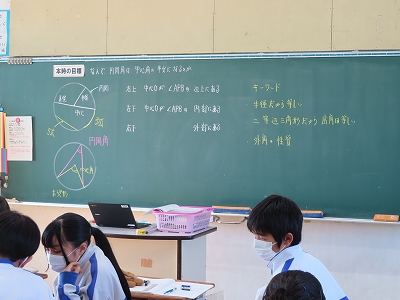 本時の目標
なんで 円周角は 中心角の半分になるのか
円周
中心
円周角
中心角
右上 中心Oが ∠APBの 辺上にある
左下 中心Oが∠APBの 内部にある
右下 外部にある
キーワード
半径だから等しい
二等辺三角形だから 底角は等しい
外角の性質